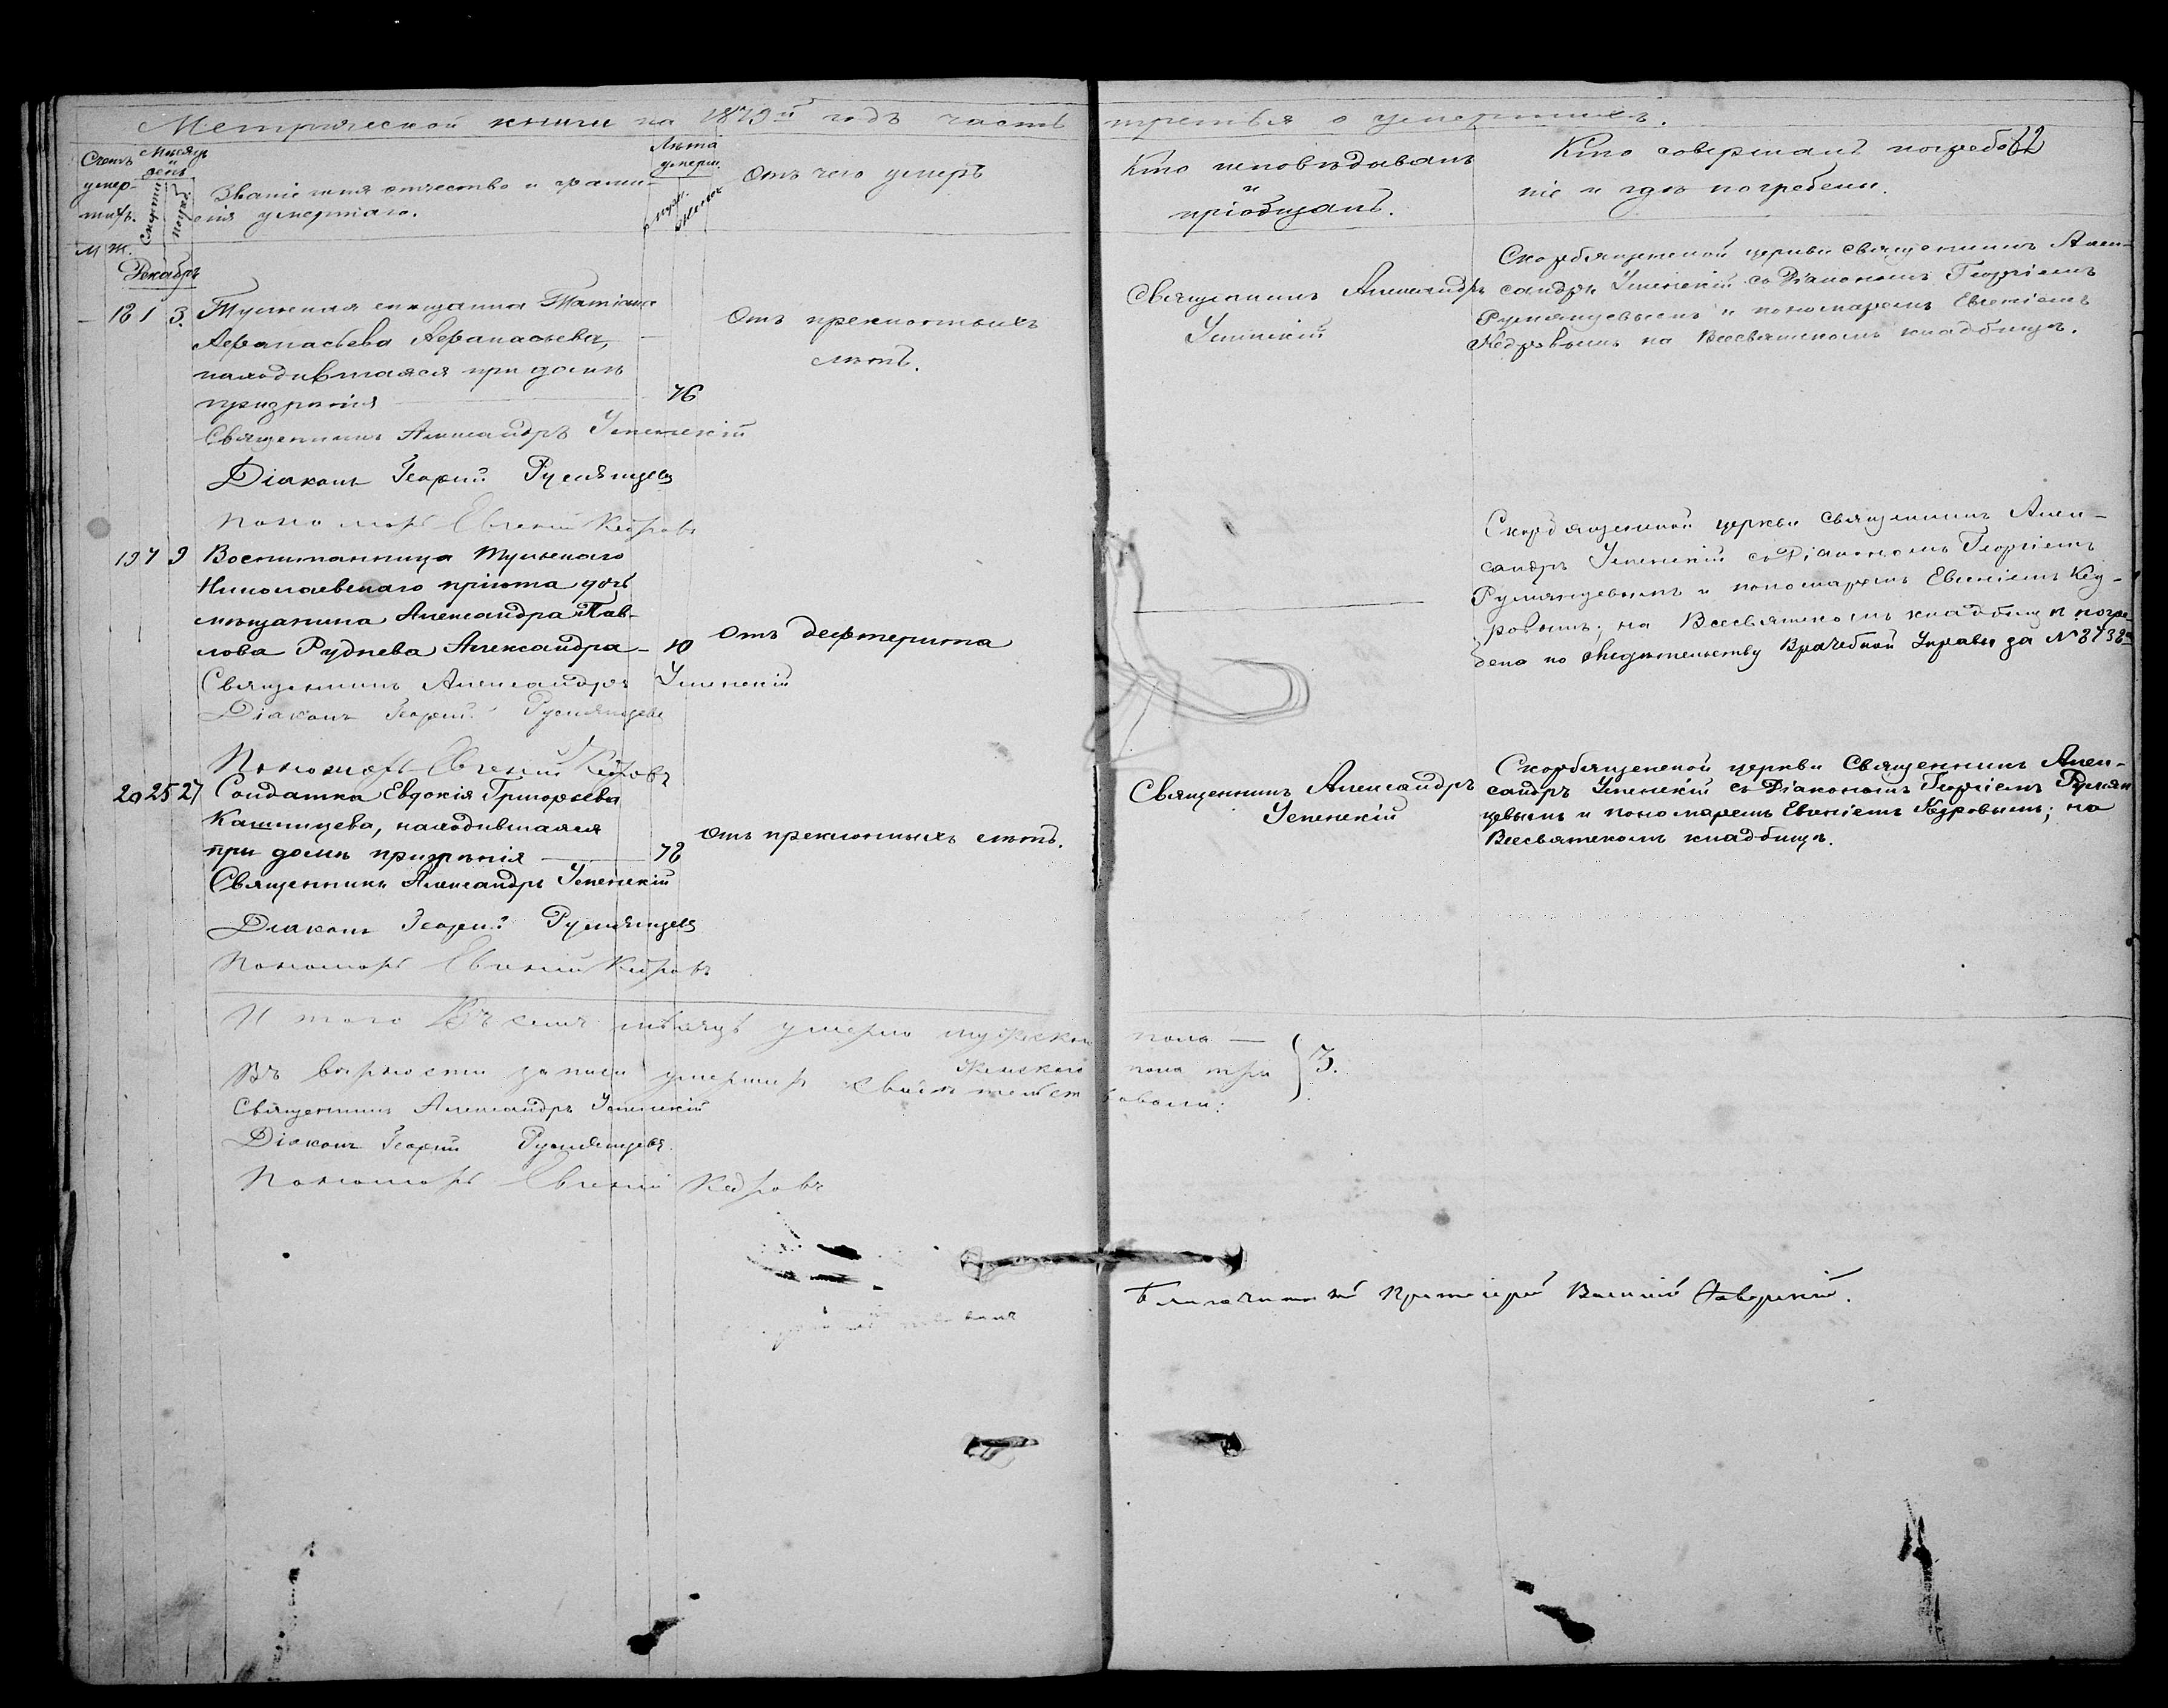 Метрической книги на 1879й годъ часть третья о умершихъ.
Счетъ умер-шихъ.
Мѣсяцъ и день
Смерти
погреб.
Званіе имя отчество и фами-
лія умершаго.
Лѣта умерш.
Мужск.
Женск.
Отъ чего умеръ
Кто исповѣдывалъ
и
пріобщалъ.
Кто совершалъ погребе
ніе и гдѣ погребены.
62
М Ж.
Декабрь
— 18 1 3. Тульская мѣщанка Татіана
Аѳанасьева Аѳанасьева,
находившаяся при домѣ
призрѣнія 76
Отъ преклонныхъ
лѣтъ.
Священникъ Александръ
Успенскій
Скорбященской церкви священникъ Алек-
сандръ Успенскій со Діакономъ Георгіемъ
Румянцевымъ и пономаремъ Евгеніемъ
Кедровымъ на Всесвятскомъ кладбищѣ.
Священникъ Александръ Успенскій
Діаконъ Георгий Румянцевъ
Пономарь Евгений Кедровъ
19 7 9 Воспитанница Тульскаго
Николаевскаго пріюта дочь
мѣщанина Александра Пав-
лова Руднева Александра 10
Отъ дефтерита
Скорбященской церкви священникъ Алек-
сандръ Успенскій съ Діакономъ Георгіемъ
Румянцевымъ и пономаремъ Евгеніемъ Кед-
ровымъ; на Всесвятскомъ кладбищѣ погре-
бена по свидѣтельству Врачебной Управы за № 8738м
Священникъ Александръ Успенскій
Діаконъ Георгий Румянцевъ
Пономарь Евгений Кедровъ
20 25 27 Солдатка Евдокія Григорьева
Кашинцева, находившаяся
при домѣ призрѣнія 78
Отъ преклонныхъ лѣтъ.
Священникъ Александръ
Успенскій
Скорбященской церкви Священникъ Алек-
сандръ Успенскій съ Діакономъ Георгіемъ Румян
цевымъ и пономаремъ Евгеніемъ Кедровымъ; на
Всесвятскомъ кладбищѣ.
Священникъ Александръ Успенскій
Діаконъ Георгий Румянцевъ
Пономарь Евгений Кедровъ
Итого въ семъ мѣсяцѣ умерло мужскаго пола —
женскаго пола три } 3.
Въ вѣрности записи умершихъ свидѣтельствовали:
Священникъ Александръ Успенскій
Діаконъ Георгий Румянцевъ.
Пономарь Евгений Кедровъ
Благочинный Протоіерей Василій